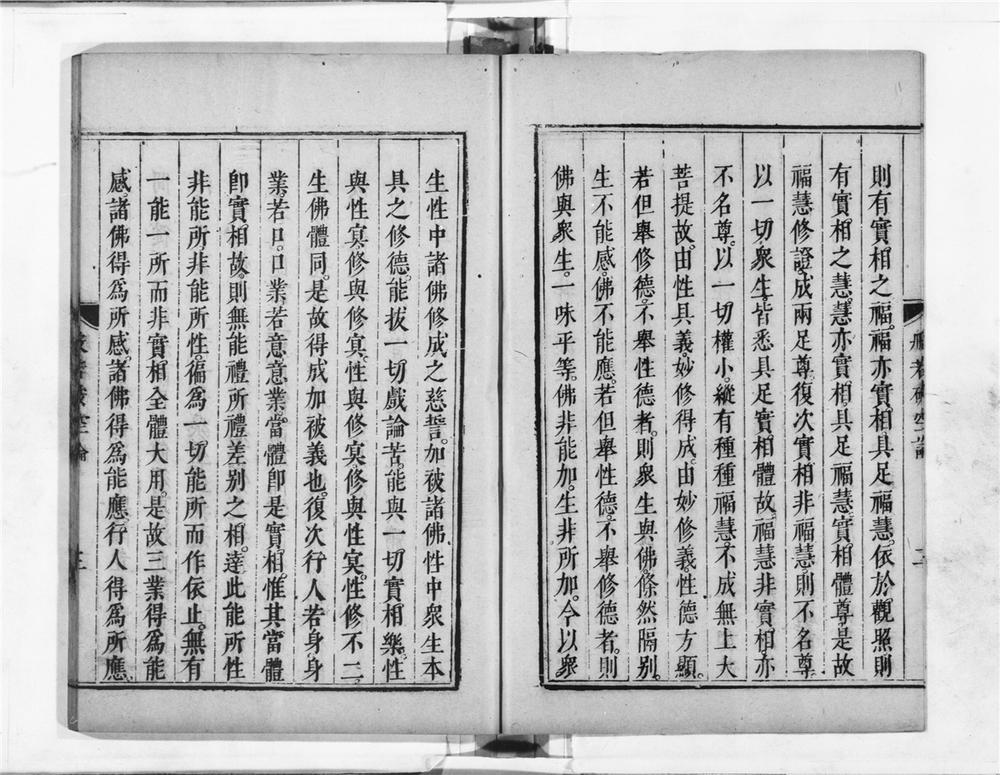 則有實相之福。福亦實相。具足福慧。依於觀照則
有實相之慧。慧亦實相。具足福慧。實相體尊。是故
福慧修證。成兩足尊。復次實相非福慧。則不名尊。
以一切衆生。皆悉具足實相體故。福慧非實相。亦
不名尊。以一切權小。縱有種種福慧。不成無上大
菩提故。由性具義。妙修得成。由妙修義。性德方顯。
若但舉修德。不舉性德者。則衆生與佛條然隔別。
生不能感。佛不能應。若但舉性德。不舉修德者。則
佛與衆生。一味平等。佛非能加。生非所加。今以衆
般若破空論
二
生性中諸佛修成之慈誓。加被諸佛性中衆生本
具之修德。能拔一切戲論苦。能與一切實相樂。性
與性冥。修與修冥。性與修冥。修與性冥。性修不二。
生佛體同。是故得成加被義也。復次行人若身身
業。若口口業。若意意業。當體卽是實相。惟其當體
卽實相故。則無能禮所禮差別之相。達此能所性
非能所。非能所性。徧爲一切能所而作依止。無有
一能一所而非實相全體大用。是故三業得爲能
感。諸佛得爲所感。諸佛得爲能應。行人得爲所應。
般若破空論
三